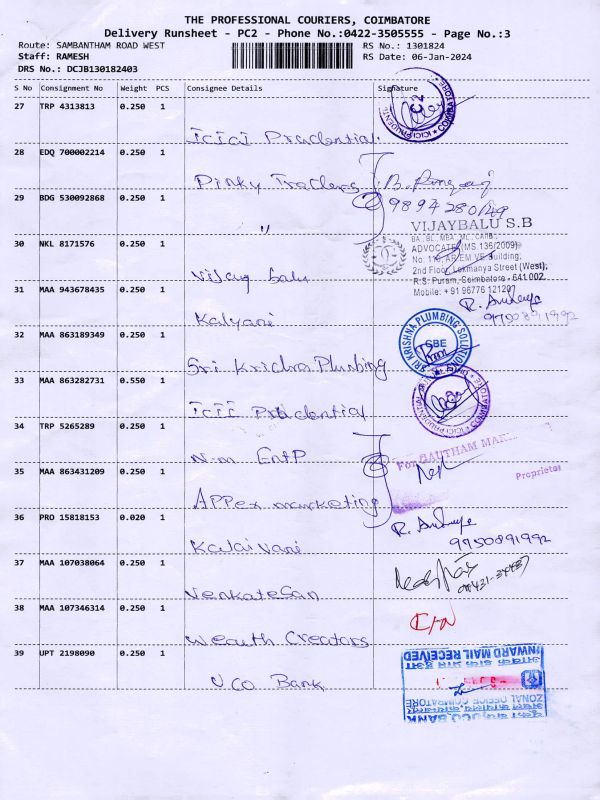 THE PROFESSIONAL COURIERS, COIMBATORE
Delivery Runsheet - PC2 - Phone No.:0422-3505555 - Page No.:3
Route: SAMBANTHAM ROAD WEST
RS No.: 1301824
Staff: RAMESH
RS Date: 06-Jan-2024
DRS No.: DCJB130182403
S No Consignment No Weight PCS Consignee Details Signature
27 TRP 4313813 0.250 1
ICICI Prudential
ICICI PRUDENTIAL COIMBATORE
28 EDQ 700002214 0.250 1
Pinky Traders
29 BDG 530092868 0.250 1
"
30 NKL 8171576 0.250 1
Vijay balu
VIJAYBALU S.B
ADVOCATE (MS.136/2009)
2nd Floor, Lokmanya Street (West),
R.S. Puram, Coimbatore - 641 002.
Mobile: +91 96776 121207
31 MAA 943678435 0.250 1
Kalyani
9750891992
32 MAA 863189349 0.250 1
Sri Krishna Plumbing
SRI KRISHNA PLUMBING SOLUTION
33 MAA 863282731 0.550 1
ICICI Prudential
34 TRP 5265289 0.250 1
N.m EntP
For GAUTHAM
Proprietor
35 MAA 863431209 0.250 1
APPex marketing
36 PRO 15818153 0.020 1
Kalaivani
9750891992
37 MAA 107038064 0.250 1
Venkatesan
38 MAA 107346314 0.250 1
Wealth Creators
39 UPT 2198090 0.250 1
UCO Bank
INWARD MAIL RECEIVED
ZONAL OFFICE COIMBATORE
UCO BANK